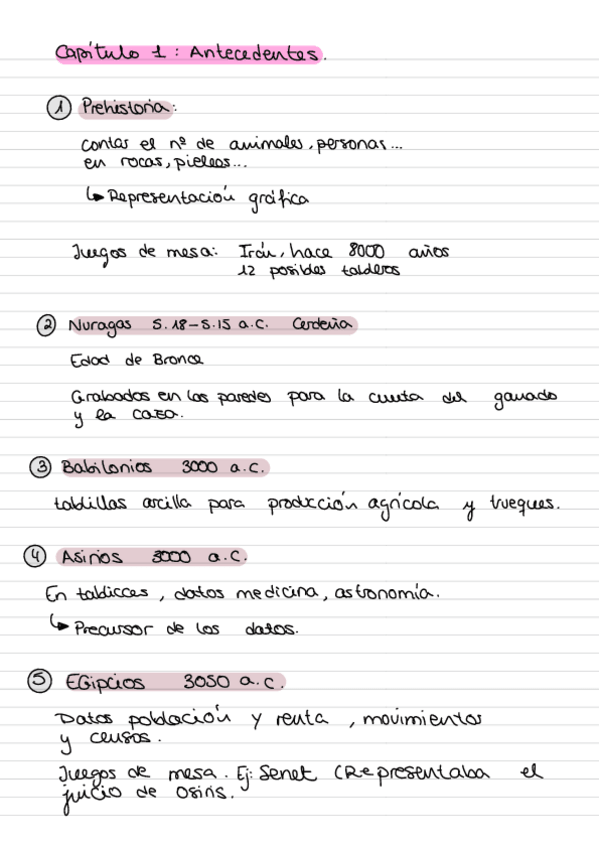 Capítulo 1: Antecedentes.
1 Prehistoria:
contar el nº de animales, personas...
en rocas, pieles...
↳ Representación gráfica
Juegos de mesa: Irán, hace 8000 años
12 posibles tableros
2 Nuragas S.18-S.15 a.C. Cerdeña
Edad de Bronce
Grabados en las paredes para la cuenta del ganado
y la caza.
3 Babilonios 3000 a.C.
tablillas arcilla para producción agrícola y trueques.
4 Asirios 3000 a.C.
En , datos medicina, astronomía.
↳ Precursor de los datos.
5 EGipcios 3050 a.C.
Datos población y renta, movimientos
y censos.
Juegos de mesa. Ej: Senet (Representaba el
juicio de Osiris.